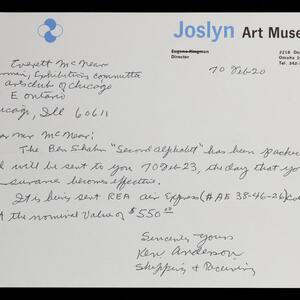 Joslyn Art Muse
Eugene Kingman
Director
2218 Do
Omaha 2
Tel. 342-
70 Feb 20
Everett McNear
Exhibitions Committee
Arts Club of Chicago
E Ontario
cago, Ill 60611
ear Mr McNear:
The Ben Shahn "Second Alphabet" has been packed
d will be sent to you 70 Feb 23, the day that yo
surance becomes effective.
It is being sent REA air Express (#AE 38-46-26) Col
t the nominal value of $550
Sincerely yours
Ken Anderson
Shipping & Receiving